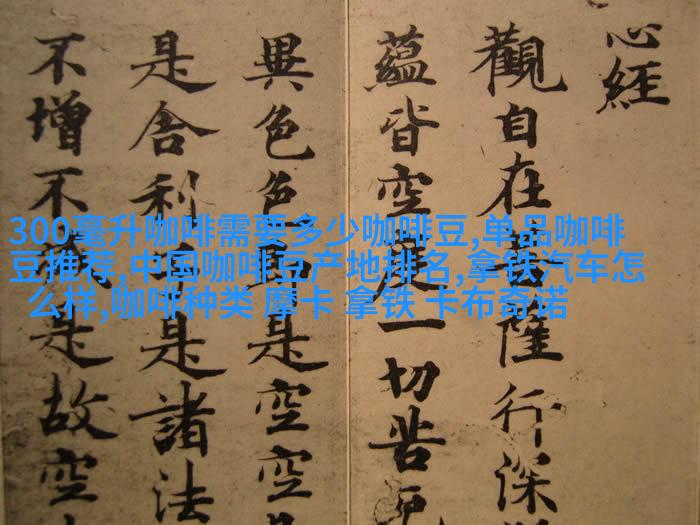 心經
觀自在菩薩行深
蘊皆空度一切苦厄
異色色即是空空
是舍利子是諸法
不增不減是故空
300毫升咖啡需要多少咖啡豆,单品咖啡
豆推荐,中国咖啡豆产地排名,拿铁汽车怎
么样,咖啡种类 摩卡 拿铁 卡布奇诺